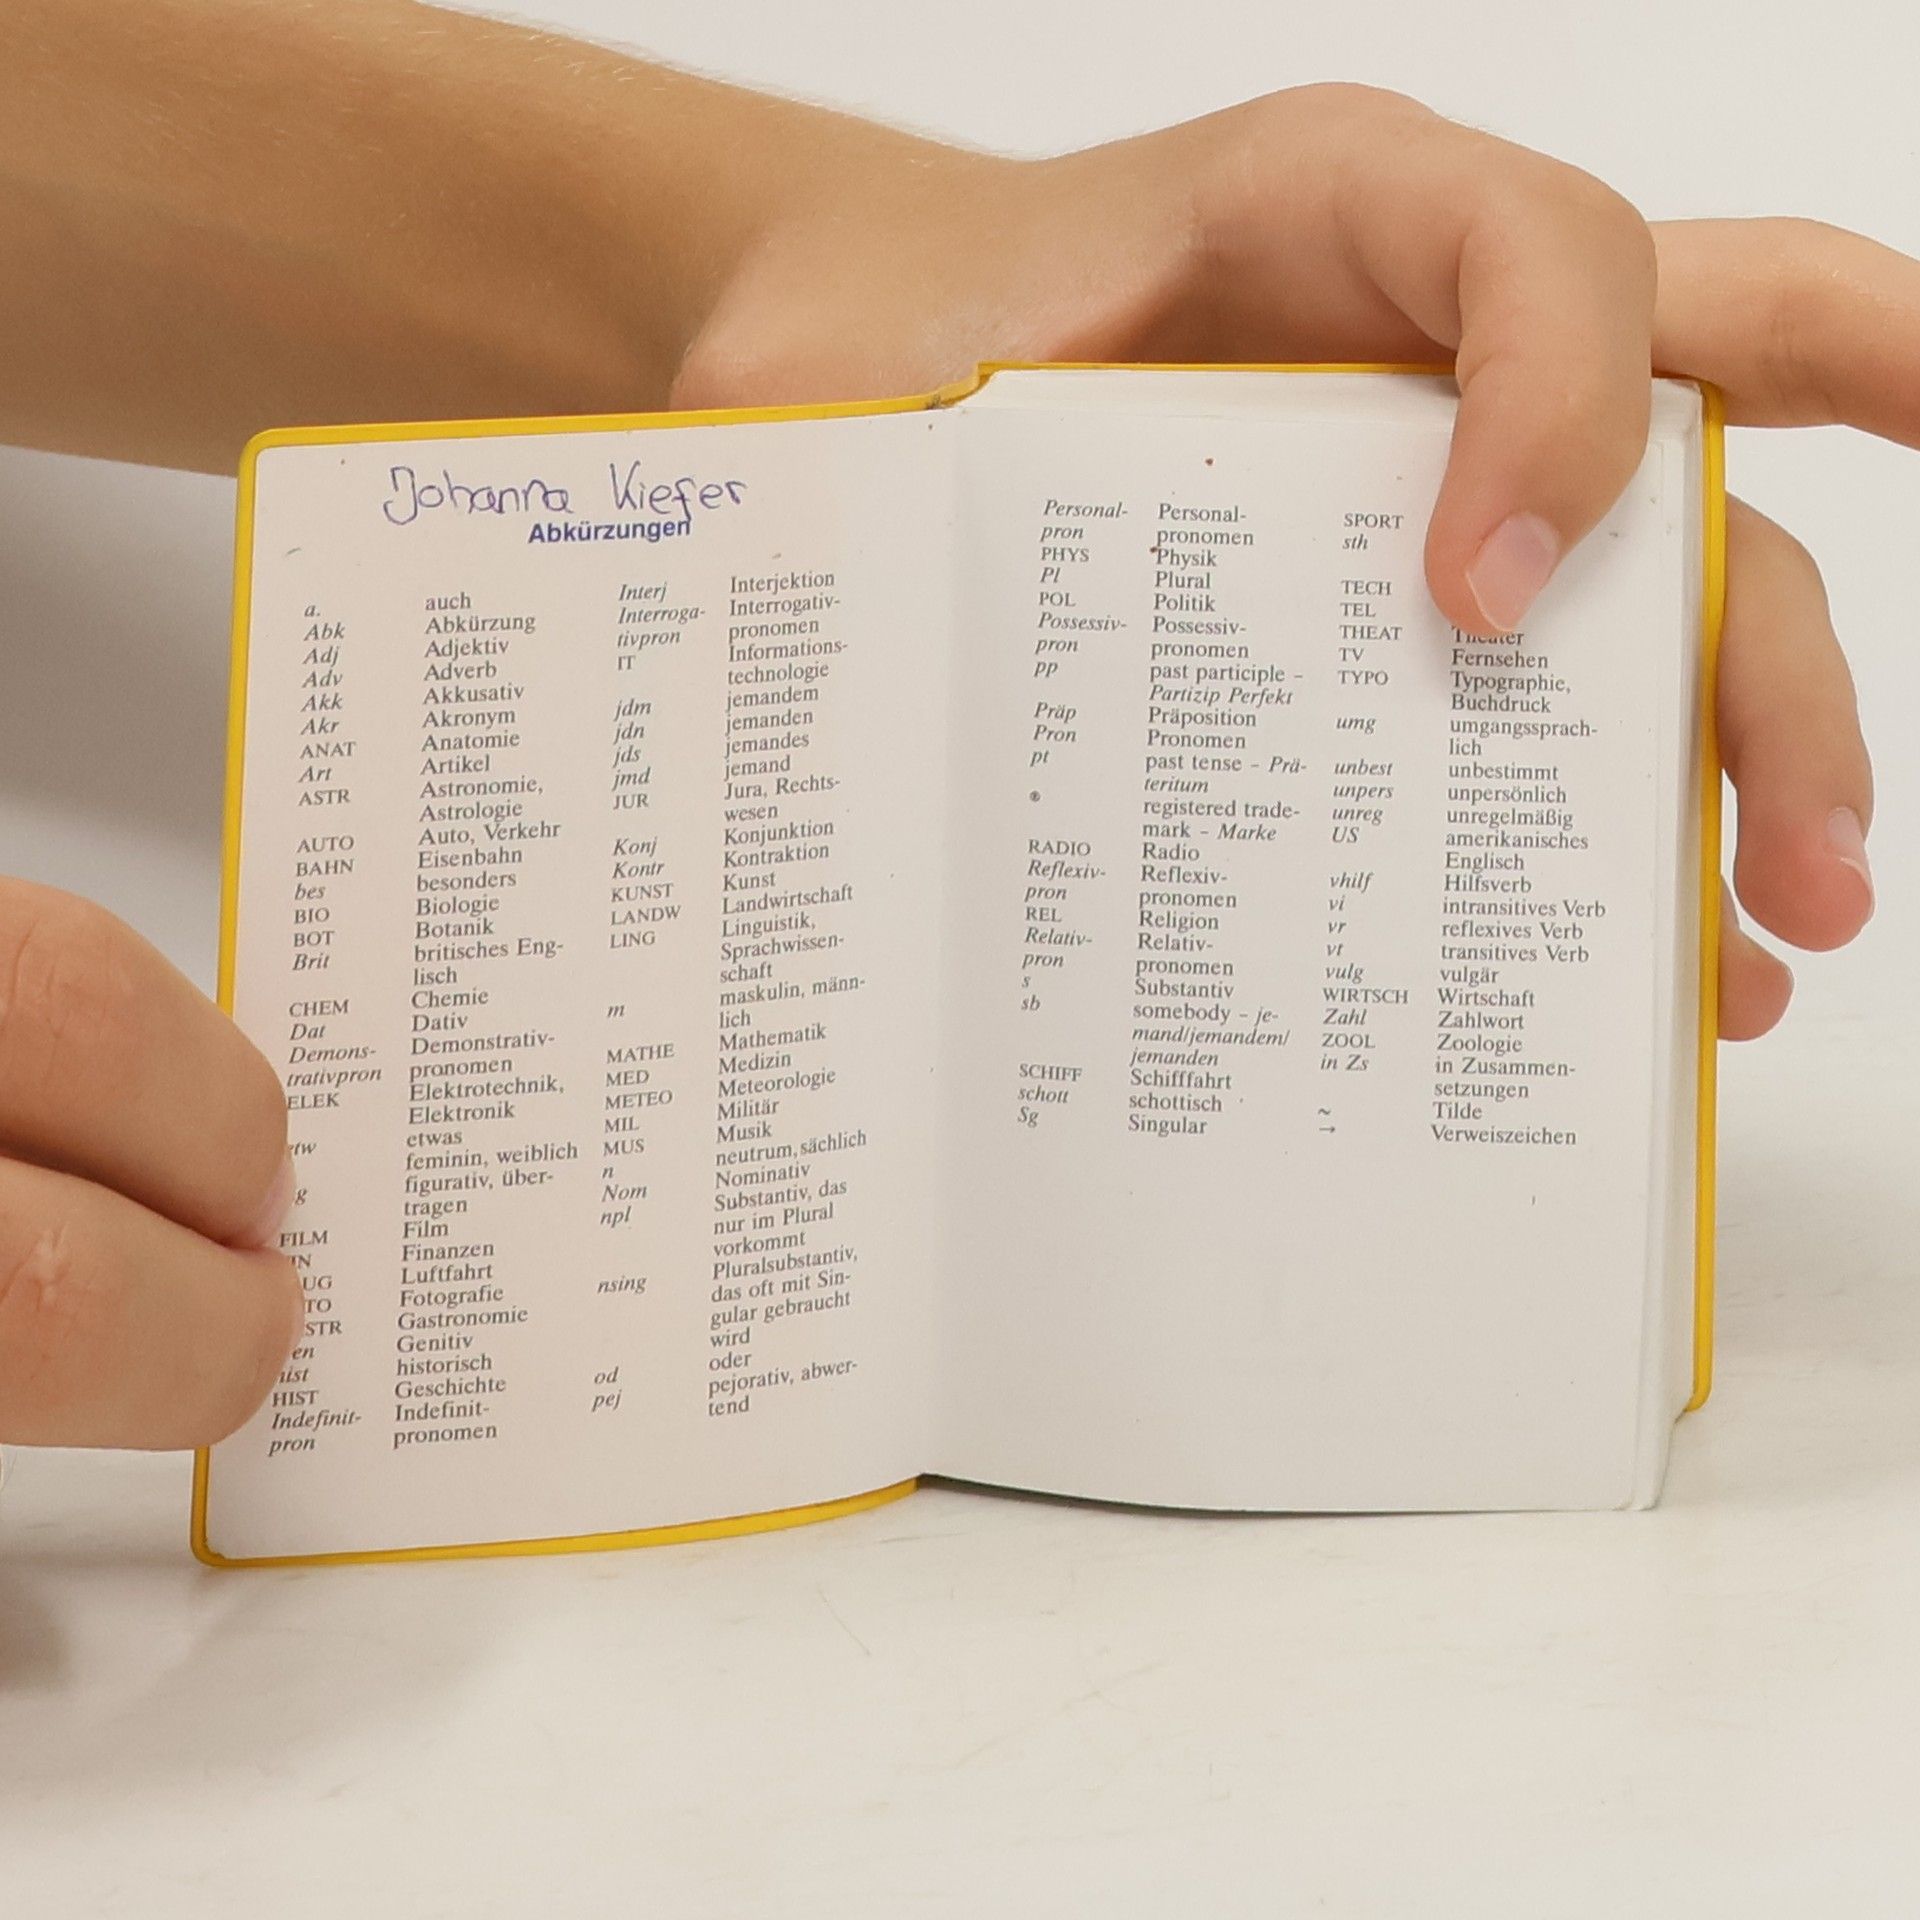 Johanna Kiefer
Abkürzungen
a. auch
Abk Abkürzung
Adj Adjektiv
Adv Adverb
Akk Akkusativ
Akr Akronym
ANAT Anatomie
Art Artikel
ASTR Astronomie,
Astrologie
AUTO Auto, Verkehr
BAHN Eisenbahn
bes besonders
BIO Biologie
BOT Botanik
Brit britisches Eng-
lisch
CHEM Chemie
Dat Dativ
Demons- Demonstrativ-
trativpron pronomen
ELEK Elektrotechnik,
Elektronik
etw etwas
feminin, weiblich
figurativ, über-
tragen
FILM Film
Finanzen
Luftfahrt
Fotografie
Gastronomie
Genitiv
hist historisch
HIST Geschichte
Indefinit- Indefinit-
pron pronomen
Interj Interjektion
Interroga- Interrogativ-
tivpron pronomen
IT Informations-
technologie
jdm jemandem
jdn jemanden
jds jemandes
jmd jemand
JUR Jura, Rechts-
wesen
Konj Konjunktion
Kontr Kontraktion
KUNST Kunst
LANDW Landwirtschaft
LING Linguistik,
Sprachwissen-
schaft
m maskulin, männ-
lich
MATHE Mathematik
MED Medizin
METEO Meteorologie
MIL Militär
MUS Musik
n neutrum, sächlich
Nom Nominativ
npl Substantiv, das
nur im Plural
vorkommt
nsing Pluralsubstantiv,
das oft mit Sin-
gular gebraucht
wird
od oder
pej pejorativ, abwer-
tend
Personal- Personal-
pron pronomen
PHYS Physik
Pl Plural
POL Politik
Possessiv- Possessiv-
pron pronomen
pp past participle –
Partizip Perfekt
Präp Präposition
Pron Pronomen
pt past tense – Prä-
teritum
® registered trade-
mark – Marke
RADIO Radio
Reflexiv- Reflexiv-
pron pronomen
REL Religion
Relativ- Relativ-
pron pronomen
s Substantiv
sb somebody – je-
mand/jemandem/
jemanden
SCHIFF Schifffahrt
schott schottisch
Sg Singular
SPORT
sth
TECH
TEL
THEAT Theater
TV Fernsehen
TYPO Typographie,
Buchdruck
umg umgangssprach-
lich
unbest unbestimmt
unpers unpersönlich
unreg unregelmäßig
US amerikanisches
Englisch
vhilf Hilfsverb
vi intransitives Verb
vr reflexives Verb
vt transitives Verb
vulg vulgär
WIRTSCH Wirtschaft
Zahl Zahlwort
ZOOL Zoologie
in Zs in Zusammen-
setzungen
~ Tilde
→ Verweiszeichen